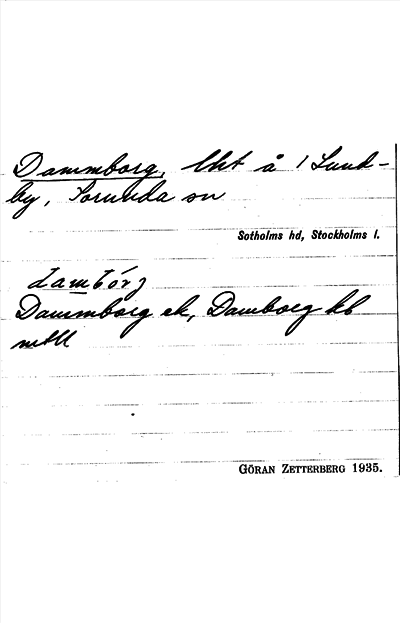 Dammborg, lht å 1 Lund-
by, Sorunda sn
Sotholms hd, Stockholms l.
Dammborg ek, Damborg kb
GÖRAN ZETTERBERG 1935.